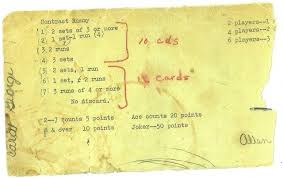 Contract Rummy
(1 2 sets of 3 or more
(2. 1 set-1 run (4)
(3 2 runs
(4 3 sets
(5 2 sets, 1 run
(6 1 set, 2 runs
(7 3 runs of 4 or more
No discard.
10 cds
15 cards
2 players--1
4 players--2
6 players--3
2--7 counts 5 points
8 & over 10 points
Ace counts 20 points
Joker--50 points
Allen